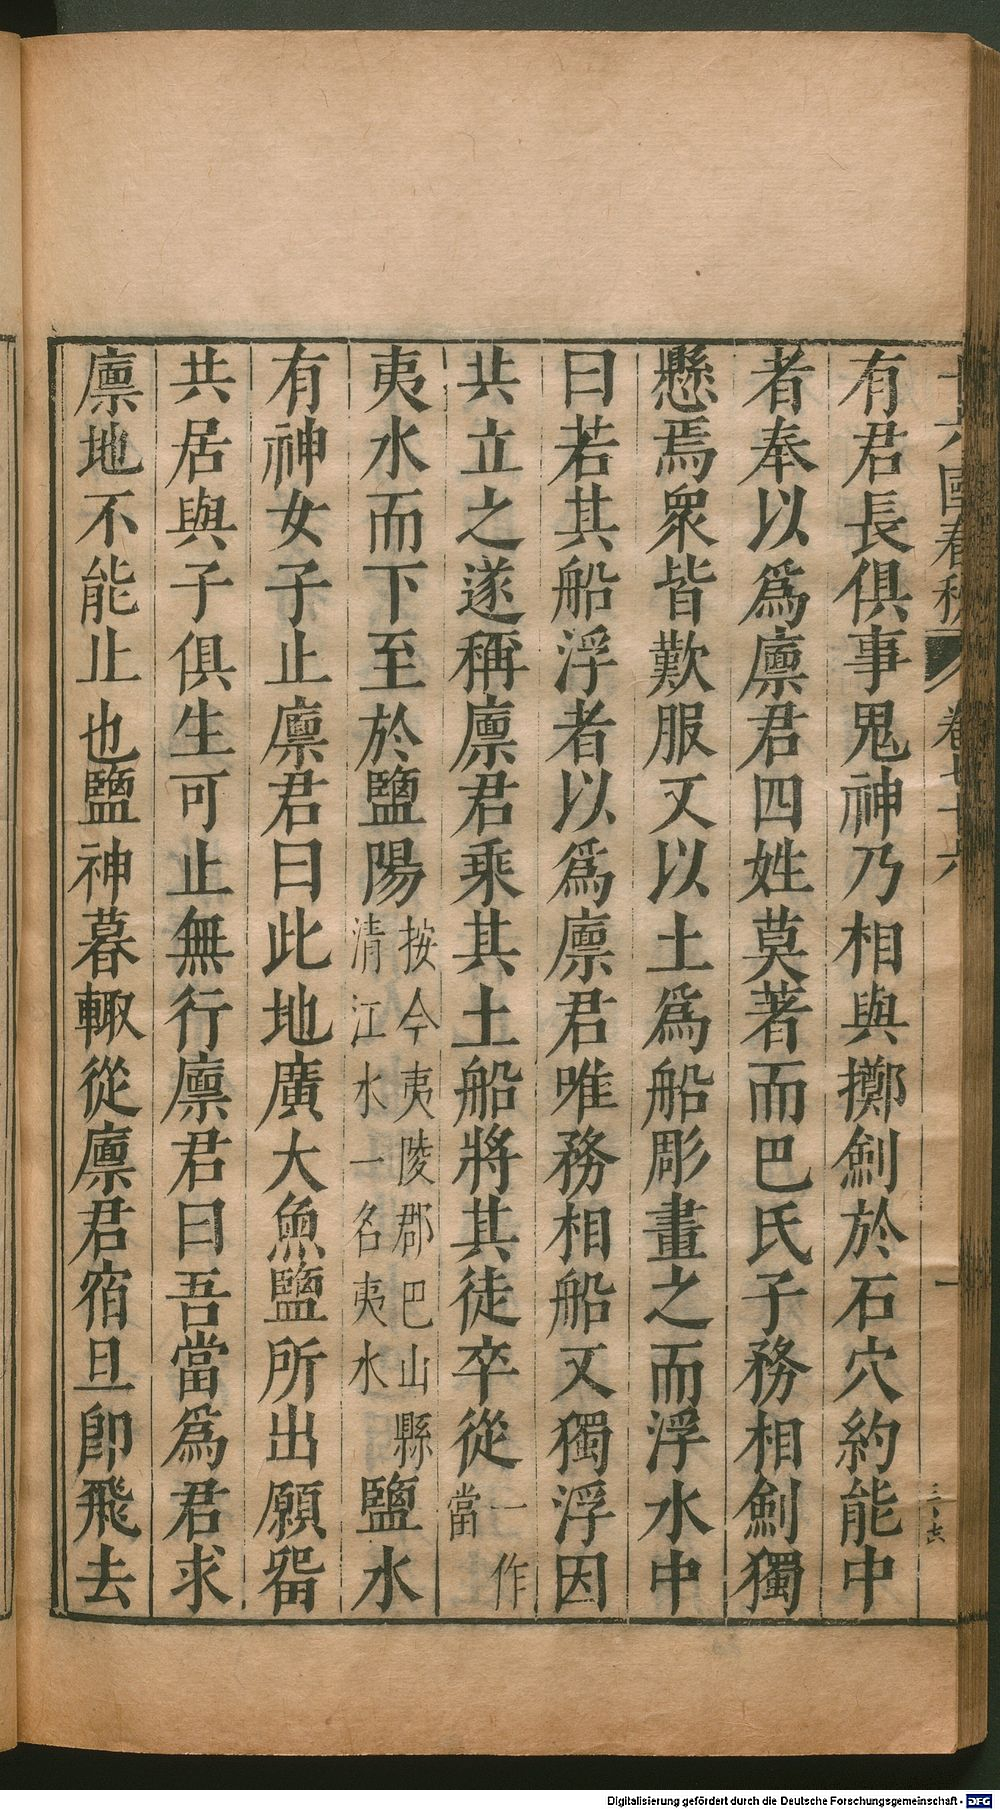 十六國春秋 卷七十六 一
有君長俱事鬼神乃相與擲劍於石穴約能中
者奉以爲廪君四姓莫著而巴氏子務相劍獨
懸焉衆皆歎服又以土爲船彫畫之而浮水中
曰若其船浮者以爲廪君唯務相船又獨浮因
共立之遂稱廪君乘其土船將其徒卒從一作當
夷水而下至於鹽陽按今夷陵郡巴山縣清江水一名夷水鹽水
有神女子止廪君曰此地廣大魚鹽所出願畱
共居與子俱生可止無行廪君曰吾當爲君求
廪地不能止也鹽神暮輙從廪君宿旦卽飛去
Digitalisierung gefördert durch die Deutsche Forschungsgemeinschaft - DFG